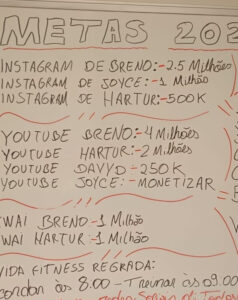 METAS 202
INSTAGRAM DE BRENO:-2.5 Milhões
INSTAGRAM DE JOYCE:-1 Milhão
INSTAGRAM DE HARTUR:-500K
YOUTUBE BRENO:-4 Milhões
YOUTUBE HARTUR:-2 Milhões
YOUTUBE DAVYD-250K
YOUTUBE JOYCE:-MONETIZAR
WAI BRENO-1 Milhão
WAI HARTUR:-1 Milhão
VIDA FITNESS REGRADA:
cordar às 8.00-Treinar às 09.00